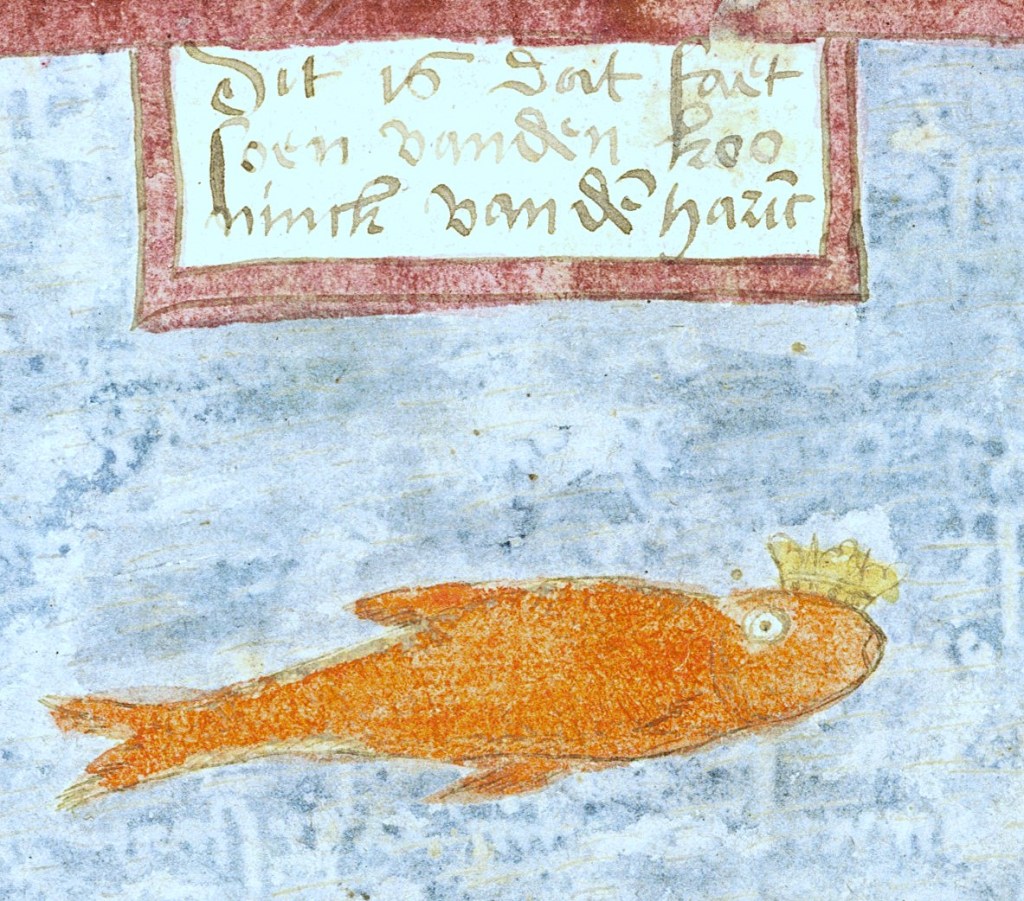 Dit is dat faet
soen vanden koo
ninck van dē harīc